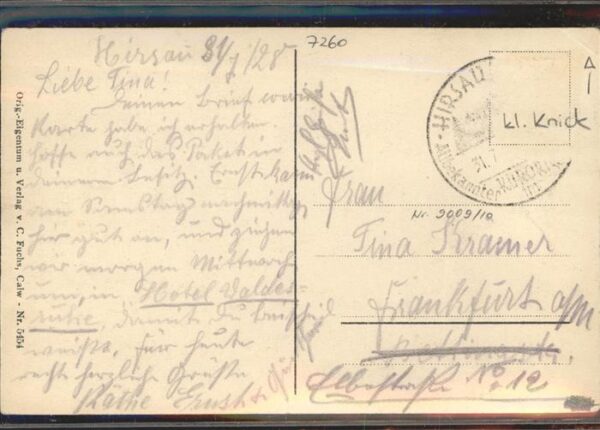 Hirsau 31/7/28
Liebe Tina!
Deinen Brief sowie
Karte habe ich erhalten
hoffe auch das Paket in
deinem Besitz. Ernst kam
am Samstag nachmittag
hier gut an, und ziehen
wir morgen Mittwoch
um, in Hotel Waldes-
, damit du bescheid
weißt. Für heute
recht herzliche Grüße
Käthe Ernst
Orig.-Eigentum u. Verlag v. C. Fuchs, Calw - Nr. 5454
7260
HIRSAU
31.7
kl. Knick
Nr. 9009/10
Frau
Tina Kramer
Frankfurt a/m
Elbestraße No 12